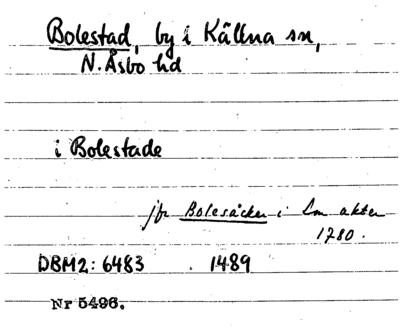 Bolestad, by i Källna sn,
N. Åsbo hd
i Bolestade
jfr Bolesäcker i Lm akter
1780.
DBM2: 6483 . 1489
Nr 5496.